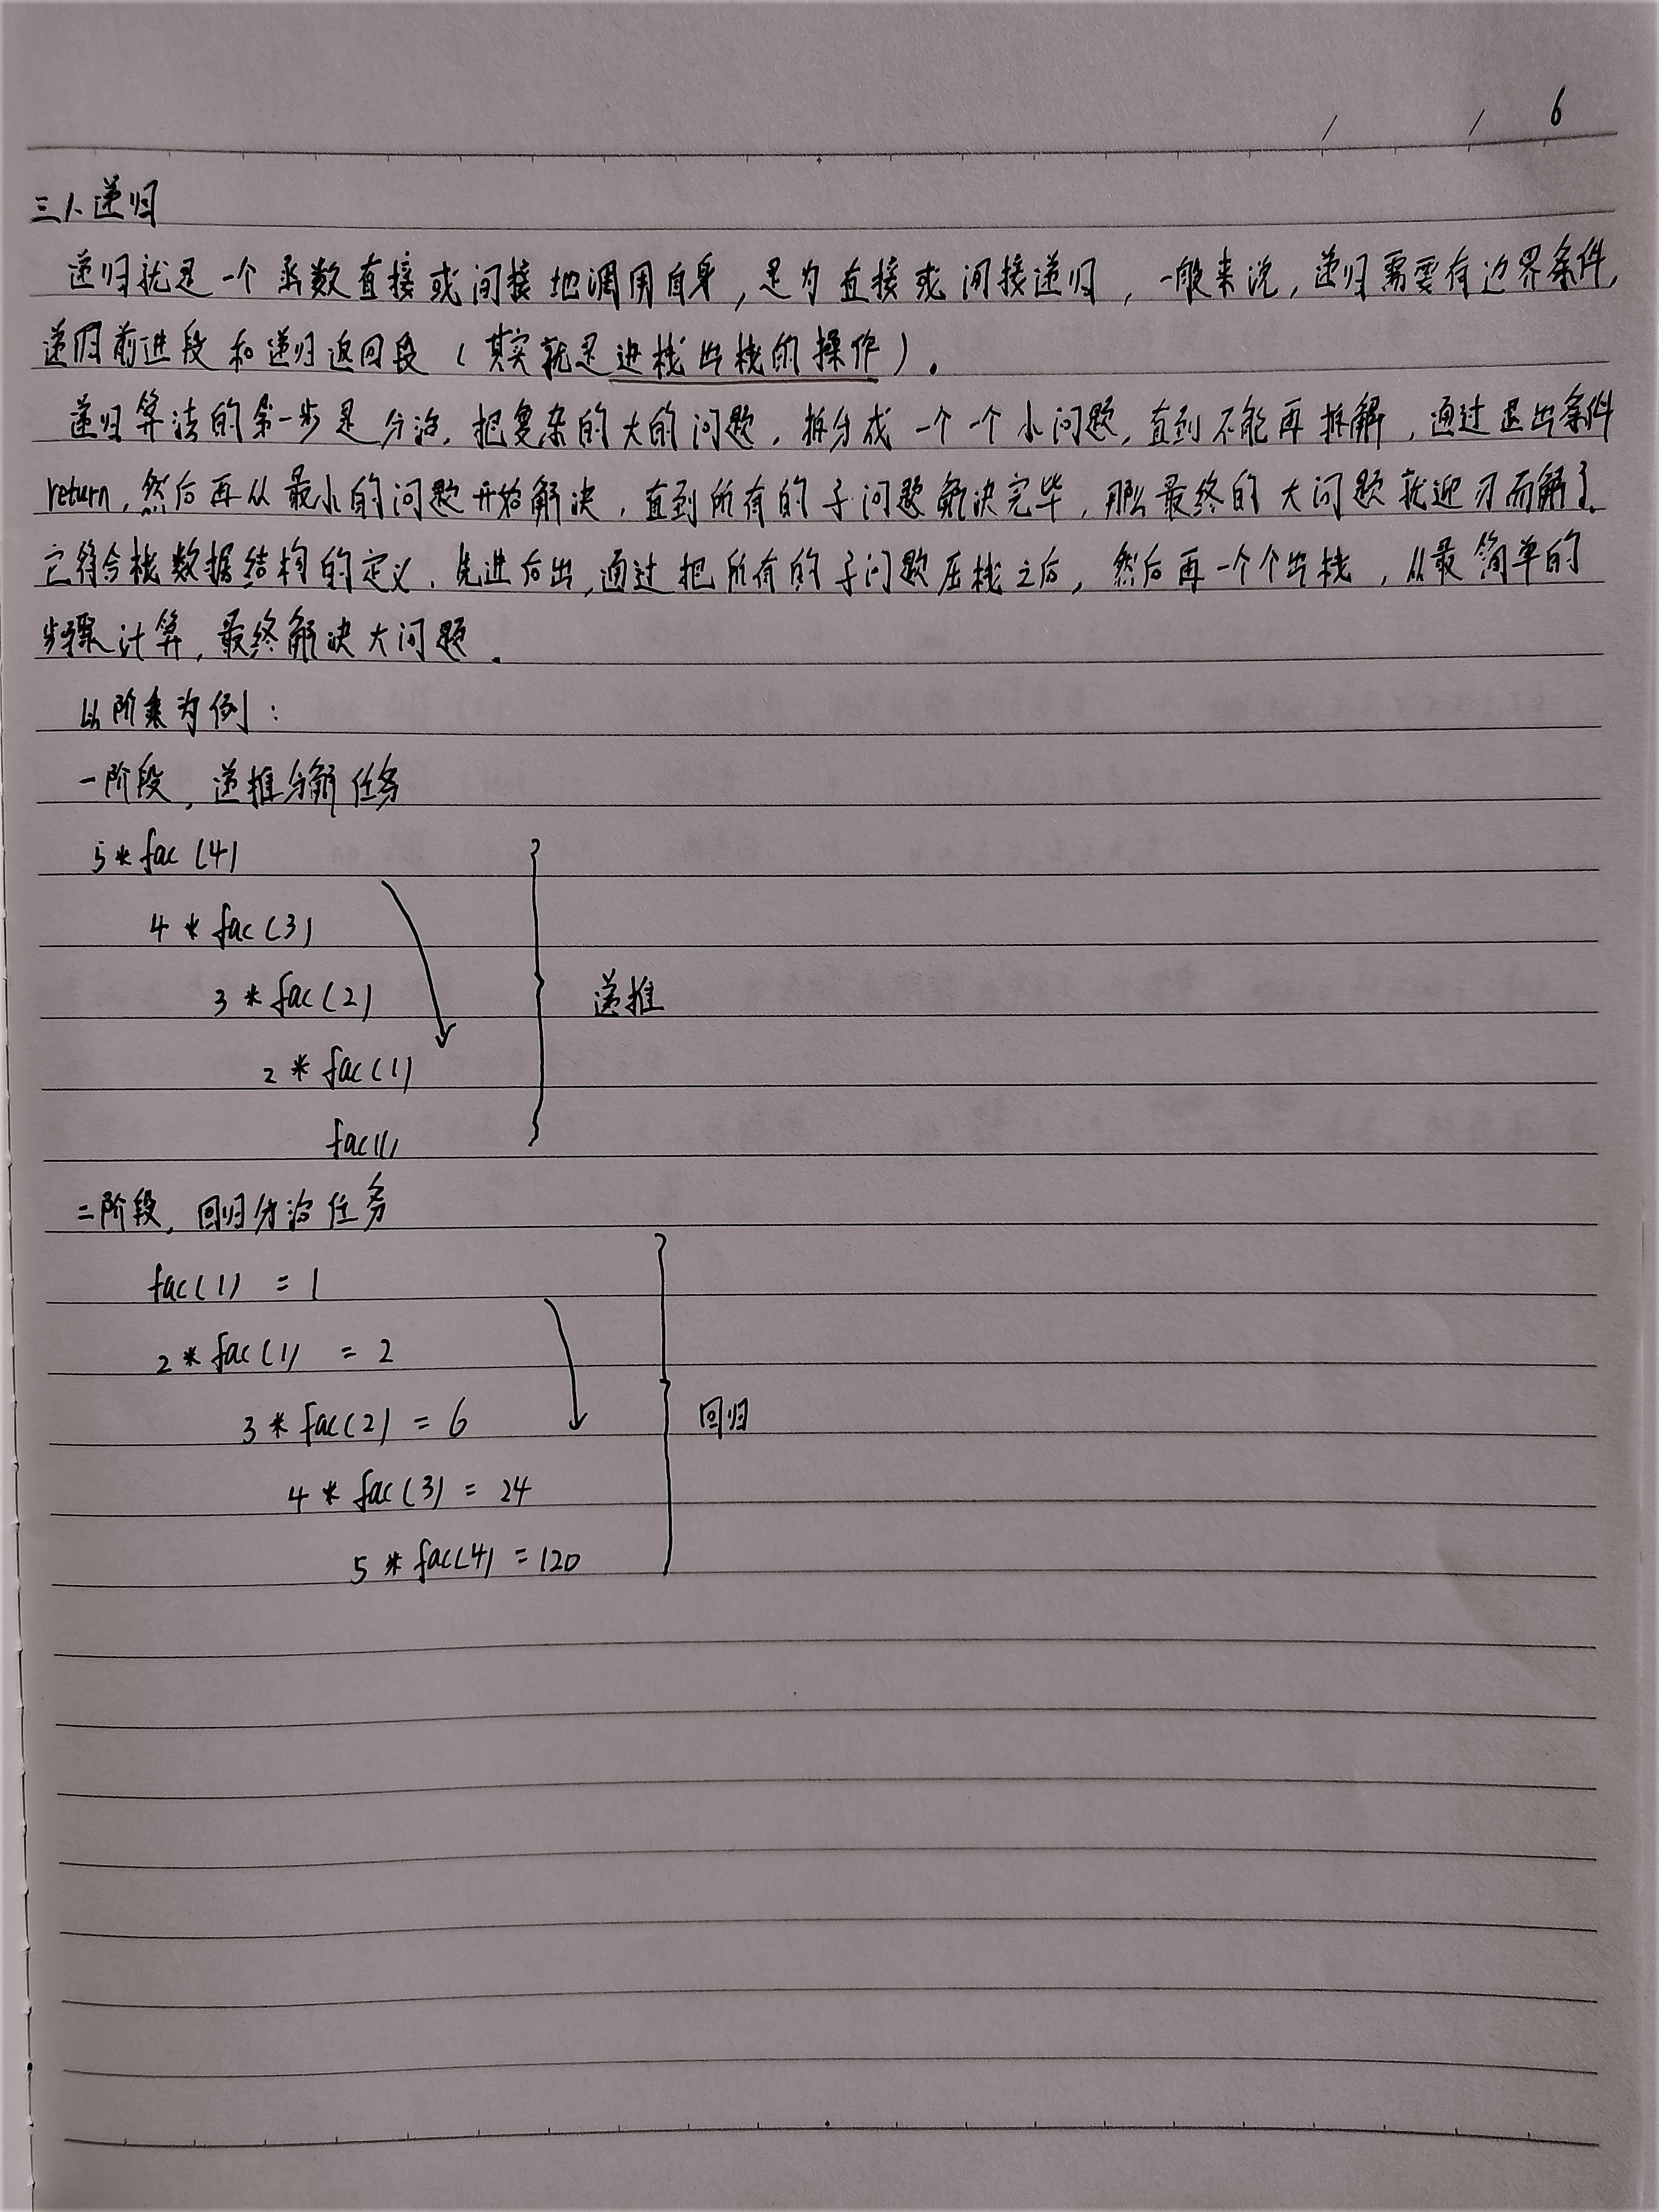 / / 6
三、1. 递归
递归就是一个函数直接或间接地调用自身，是为直接或间接递归，一般来说，递归需要有边界条件，
递归前进段和递归返回段（其实就是进栈出栈的操作）。
递归算法的第一步是分治，把复杂的大的问题，拆分成一个一个小问题，直到不能再拆解，通过退出条件
return，然后再从最小的问题开始解决，直到所有的子问题解决完毕，那么最终的大问题就迎刃而解了。
它符合栈数据结构的定义，先进后出，通过把所有的子问题压栈之后，然后再一个个出栈，从最简单的
步骤计算，最终解决大问题.
以阶乘为例：
一阶段，递推分解任务
5 * fac(4)
4 * fac(3)
3 * fac(2)
递推
2 * fac(1)
fac(1)
二阶段，回归分治任务
fac(1) = 1
2 * fac(1) = 2
3 * fac(2) = 6
回归
4 * fac(3) = 24
5 * fac(4) = 120